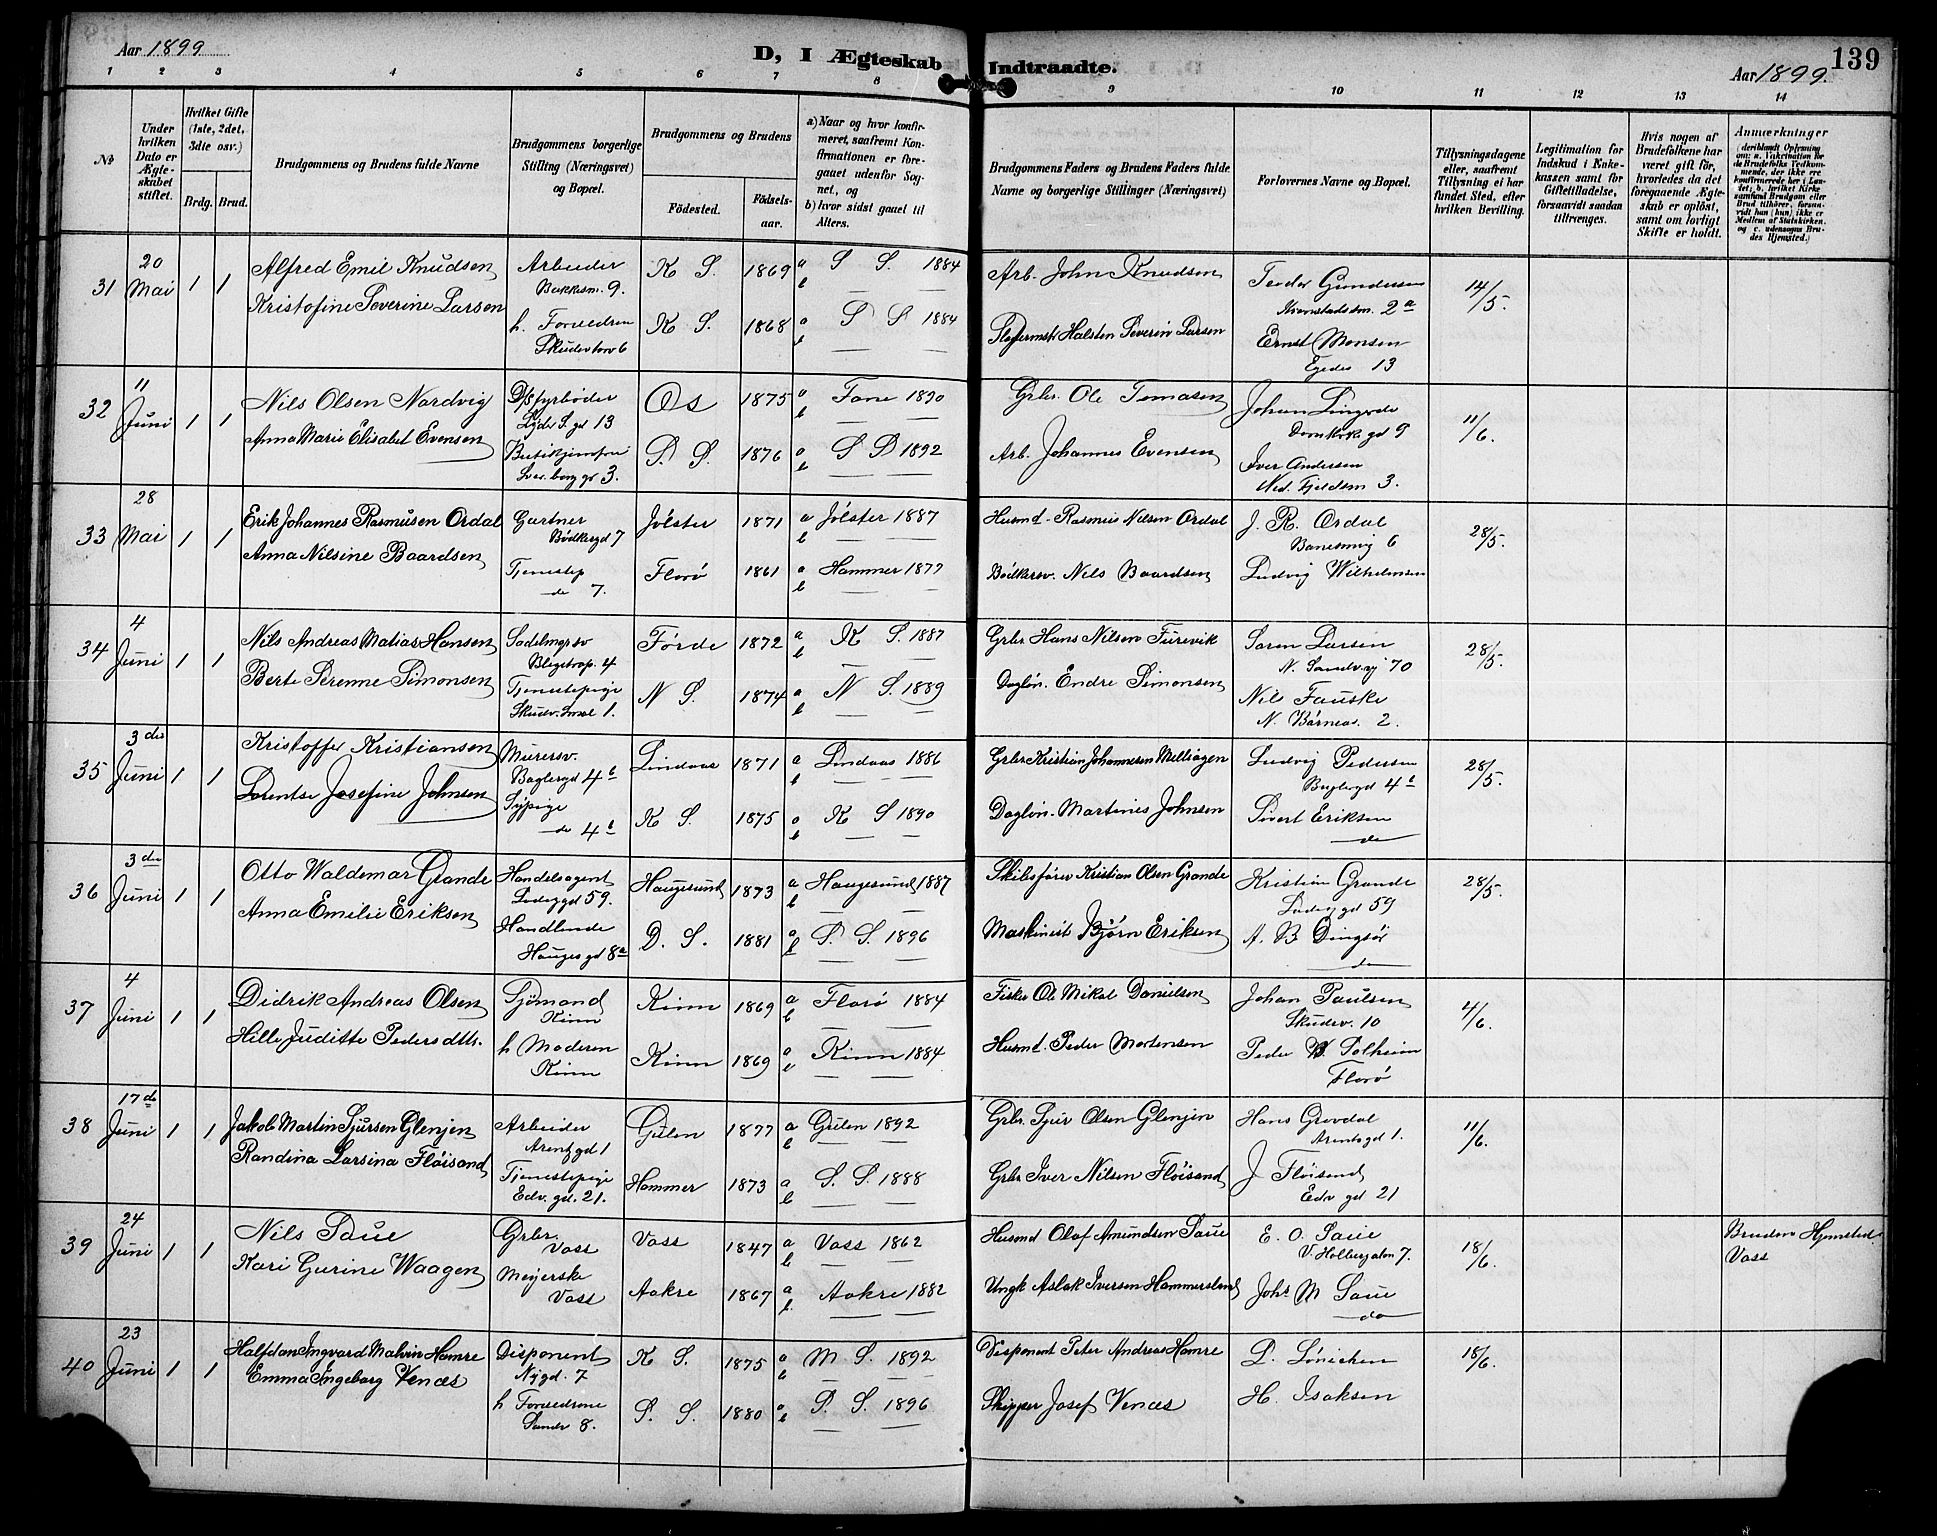 Aar 1899
D, I Ægteskab Indtraadte.
139
Aar 1899.
1 2 3 4 5 6 7 8 9 10 11 12 13 14
No
Under hvilken Dato er Ægteskabet stiftet.
Hvilket Gifte (1ste, 2det, 3die osv.)
Brdg. Brud.
Brudgommens og Brudens fulde Navne
Brudgommens borgerlige Stilling (Næringsvei) og Bopæl.
Brudgommens og Brudens
Fødested. Fødselsaar.
a) Naar og hvor konfirmeret, saafremt Konfirmationen er foregaaet udenfor Sognet, og
b) hvor sidst gaaet til Alters.
Brudgommens Faders og Brudens Faders fulde Navne og borgerlige Stillinger (Næringsvei)
Forlovernes Navne og Bopæl.
Tillysningsdagene eller, saafremt Tillysning ei har fundet Sted, efter hvilken Bevilling.
Legitimation for Indskud i Enkekassen samt for Giftetilladelse, forsaavidt saadan tiltrænges.
Hvis nogen af Brudefolkene har været gift før, hvorledes da det foregaaende Ægteskab er opløst, samt om lovligt Skifte er holdt.
Anmærkninger (deriblandt Oplysning om: a. Vakcination for de Brudefolks Vedkommende, der ikke ere konfirmerede her i Landet; b. hvilket Kirkesamfund Brudgom eller Brud tilhører, forsaavidt han (hun) ikke er Medlem af Statskirken, og c. udensogns Brudes Hjemsted.)
31 20 Mai 1 1 Alfred Emil Knudsen Arbeider 9. K S. 1869 a S S. 1884 Arb. John Knudsen Teodor Gundersen 2a 14/5.
b
Kristofine Severine Larsen h. Forældrene Skudevtorv 6 K S. 1868 a S S 1884 Halsten Severin Larsen Ernst Monsen Egedes 13
b
32 11 Juni 1 1 Nils Olsen Nordvig D/S fyrbøder 13 Os 1875 a Fane 1890 Grbr. Ole Tomasen Johan Domkirk gd 9 11/6.
b
Anna Marie Elisabet Evensen 3. P. S. 1876 a S P 1892 Arb. Johannes Evensen Iver Andersen Ned. Fjeldsm 3.
b
33 28 Mai 1 1 Erik Johannes Rasmusen Ordal Gartner Bødkergd 7 Jølster 1871 a Jølster 1887 Husmd. Rasmus Nilsen Ordal J. R. Ordal 6 28/5.
b
Anna Nilsine Baardsen Tjenestep do 7. Florø 1861 a Hammer 1877 Bødkersv. Nils Baardsen Ludvig Wilhelmsen
b
34 4 Juni 1 1 Nils Andreas Matias Hansen Sadelmgrsv 4 Førde 1872 a K S. 1887 Grbr Hans Nilsen Furevik Søren Larsen N. Sandvg 70 28/5.
b
Berte Serenne Simonsen Tjenestepige 1. N S. 1874 a N S. 1889 Dagløn. Endre Simonsen Nils Fauske N. 2.
b
35 3die Juni 1 1 Kristoffer Kristiansen Murersv. Baglergd 4b Lindaas 1871 a Lindaas 1886 Grbr Kristian Johannesen Mellsagen Ludvig Pedersen Baglergd 4b 28/5.
b
Lorentse Josefine Johnsen Sypige do 4b K S. 1875 a K S 1890 Dagløn. Martinus Johnsen Sivert Eriksen do
b
36 3die Juni 1 1 Otto Waldemar Grande Handelsagent 59. Haugesund 1873 a Haugesund 1887 Skibsfører Kristian Olsen Grande Kristian Grande 59 28/5.
b
Anna Emilie Eriksen Handlende Hauges gd 8a D. S. 1881 a P. S. 1896 Maskinist Bjørn Eriksen A. B Dingsør do
b
37 4 Juni 1 1 Didrik Andreas Olsen Sjømand Kinn Kinn 1869 a Florø 1884 Fisker Ole Mikal Danielsen Johan Paulsen Skudev. 10 4/6.
b
Hille Juditte Pedersdttr. h Moderen Kinn Kinn 1869 a Kinn 1884 Husmd. Peder Mortensen Peder W Solheim Florø
b
38 17de Juni 1 1 Jakob Martin Sjursen Glenjen Arbeider Arentzgd 1 Gulen 1877 a Gulen 1892 Grbr. Sjur Olsen Glenjen Hans Grovdal Arentsgd 1. 11/6.
b
Randina Larsina Fløisand Tjenestepige Edv. gd. 21. Hammer 1873 a S. S. 1888 Grbr Iver Nilsen Fløisand J Fløisand Edv gd 21
b
39 24 Juni 1 1 Nils Saue Grbr. Voss Voss 1847 a Voss 1862 Husmd Olaf Amundsen Saue E. O. Saue V. Holbergalm 7. 18/6. Brudens Hjemsted Voss
b
Kari Gurine Waagen Meijerske Voss Aakre 1867 a Aakre 1882 Ungk Aslak Iversen Hammersland Johs M Saue do
b.
40 23 Juni 1 1 Halfdan Ingvard Malvin Hamre Disponent Nygd. 7 K S. 1875 a M S. 1892 Disponent Peter Andreas Hamre P. Lønichen 18/6.
b
Emma Ingeborg Venæs h Forældrene 8. S. S. 1880 a P. S. 1896 Skipper Josef Venæs H. Isaksen
b